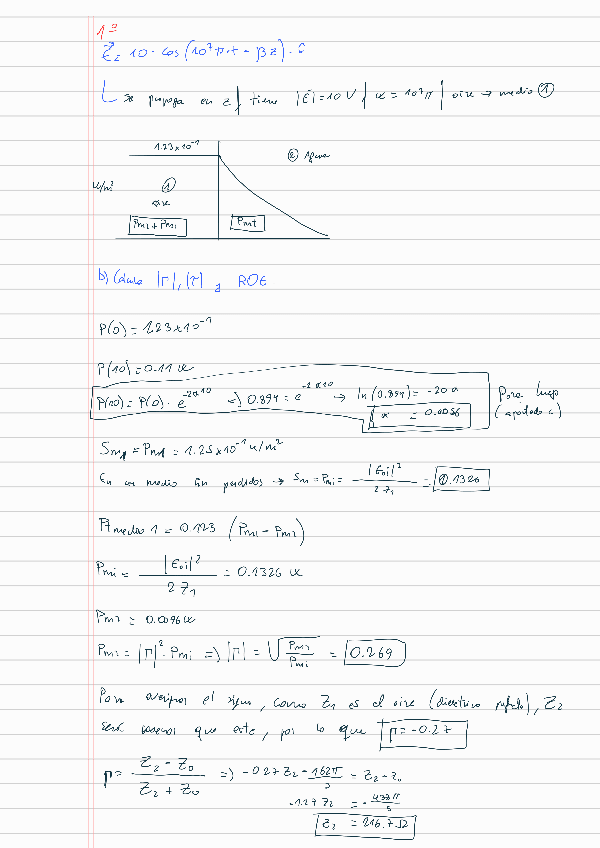 1º
E = 10 · cos (10⁷πt - βz) ·
se propaga en z | tiene |E| = 10 V | = 10⁷π | aire → medio ①
1.23x10⁻¹
② Agua
W/m²
①
aire
Pm1 + Pm1
Pmt
b) Calcula |Γ|, |τ| y ROE
P(0) = 1.23x10⁻¹
P(10) = 0.11 W
P(10) = P(0) · e^-2α10 => 0.894 = e^-2α10 → ln(0.894) = -20α
Para luego
α = 0.0056
(apartado c)
= Pmt = 1.23x10⁻¹ W/m²
En un medio sin perdidos → Sm = Pmi = |Eoi|² / 2 Z1 = 0.1326
medio 1 = 0.123 (Pm1 - Pm2)
Pmi = |Eoi|² / 2 Z1 = 0.1326 W
Pm2 = 0.0096 W
= |Γ|² · Pmi => |Γ| = √ / Pmi = 0.269
Para averiguar el signo, como Z1 es el aire (dieléctrico perfecto), Z2
será menor que este, por lo que Γ = -0.27
Γ = Z2 - Z0 / Z2 + Z0 => -0.27 Z2 - 162π / 5 = Z2 - Z0
-1.27 Z2 = -
Z2 = 216.7 Ω